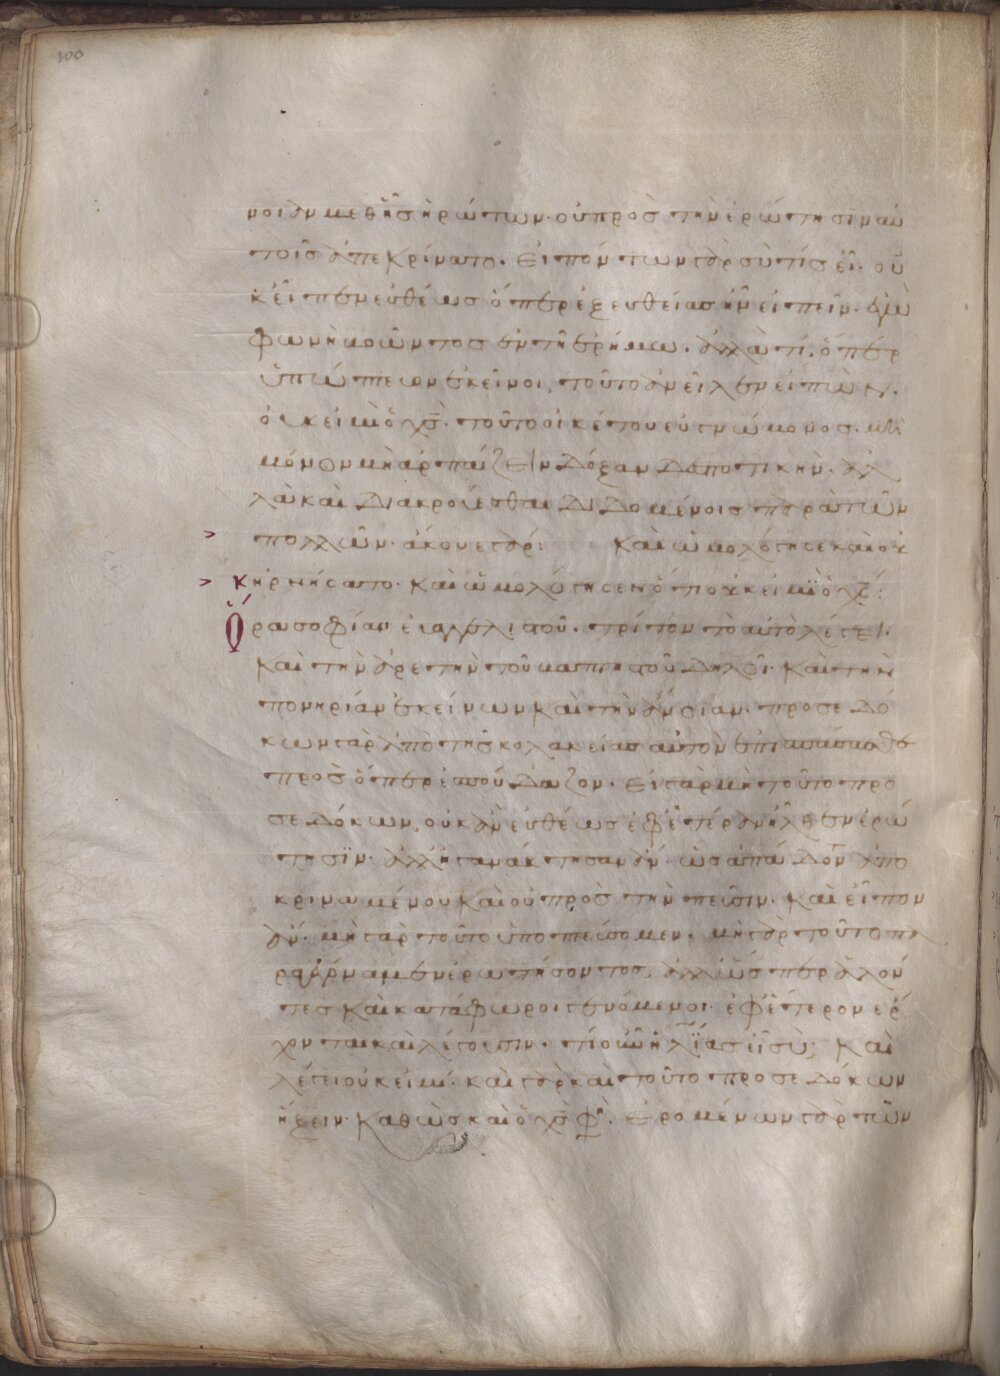 100
νοι ἂν μεθ ἧς ἠρώτων· οὐ πρὸς τὴν ἐρώτησϊν αὐ
τοῖς ἀπεκρίνατο. Εἰπόντων γὰρ σὺ τίς εἶ· οὐ
κ εἶπεν εὐθέως ὅπερ ἐξ ευθείας ἦν εἰπεῖν· ἐγὼ
φωνὴ βοῶντος ἐν τῆ ἐρήμω. ἀλλὰ τί. ὅπερ
ὑπώπτευον ἐκεῖνοι, τοῦτο ἀνεῖλεν εἰπὼν.
ὁυκ εἰμὶ ὁ χς̅. τοῦτο οἰκέτου εὐγνώμονος. μὴ
μόνον μὴ ἁρπάζειν δόξαν δεσποτικὴν. ἀλ
λὰ καὶ διακρούεσθαι διδομένοις παρὰ τῶν
πολλῶν· ἄκουε γάρ: Καὶ ὡμολόγησε καὶ οὐ
κ ἠρνήσατο. Καὶ ὡμολόγησεν ὅτι οὐκ εἰμϊ ὁ χς̅:
Ὅρα σοφίαν ἐυαγγελιστοῦ. τρίτον τὸ αὐτὸ λέγει.
Καὶ τὴν ἀρετὴν τοῦ βαπτιστοῦ δηλοῖ. Καὶ τὴν
πονηρίαν ἐκείνων καὶ τὴν ἄνοιαν. προσεδό
κων γὰρ ἀπὸ τῆς κολακείας αὐτὸν ἐπισπάσασθε
πρὸς ὅπερ ἐσπούδαζον. Εἰ γὰρ μὴ τοῦτο προ
σεδόκων, οὐκ ἂν εὐθέως ἐφ ἑτέραν ἦλθον ἐρώ
τησϊν. ἀλλ ἠγανάκτησαν ἂν. ὡς ἀπάδον ἀπο
κριναμένου καὶ οὐ πρὸς τὴν πεῦσιν. Καὶ εἶπον
ἂν. μὴ γὰρ τοῦτο ὑποπτεύομεν. μὴ γὰρ τοῦτο πα
ραγέγοναμεν ἐρωτήσοντες. ἀλλ ὥσπερ ἁλόν
τες καὶ κατάφωροι γενόμενοι. ἐφ ἕτερον ἔρ
χονται καὶ λέγουσιν. τί οὖν ἠλϊας εἶ σὺ; Καὶ
λέγει οὐκ εἰμί. καὶ γὰρ καὶ τοῦτο προσεδόκων
ἥξειν. Καθὼς καὶ ὁ χς̅ φη. Ἐρομένων γὰρ τῶν